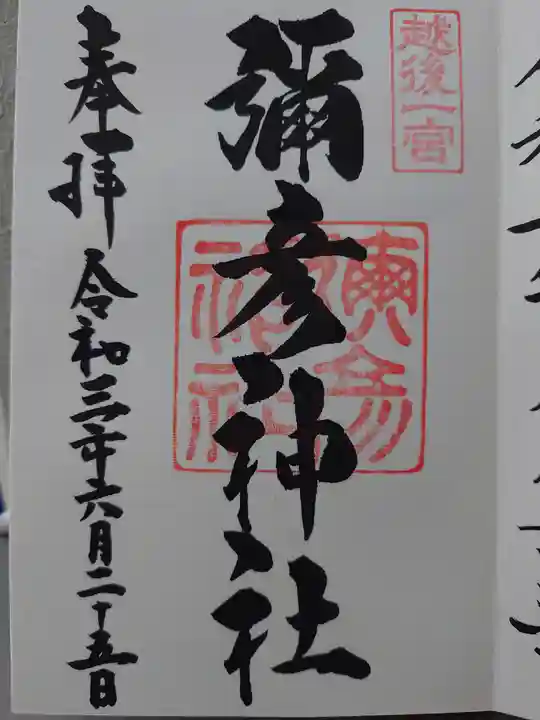 越後一宮
彌彦神社
彌彦神社
奉拝
令和三年六月二十五日